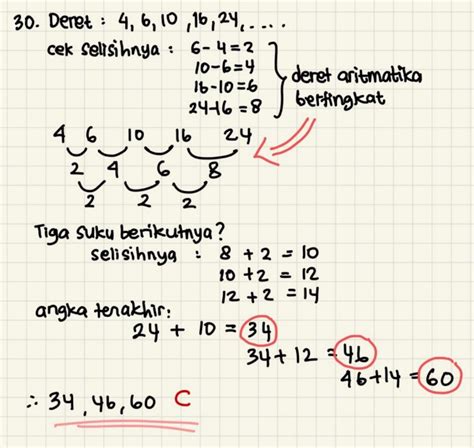 30. Deret : 4, 6, 10, 16, 24, ....
cek selisihnya : 6 - 4 = 2
10 - 6 = 4
16 - 10 = 6
24 - 16 = 8
deret aritmatika
bertingkat
4 6 10 16 24
2 4 6 8
2 2 2
Tiga suku berikutnya?
selisihnya : 8 + 2 = 10
10 + 2 = 12
12 + 2 = 14
angka terakhir:
24 + 10 = 34
34 + 12 = 46
46 + 14 = 60
∴ 34, 46, 60 C